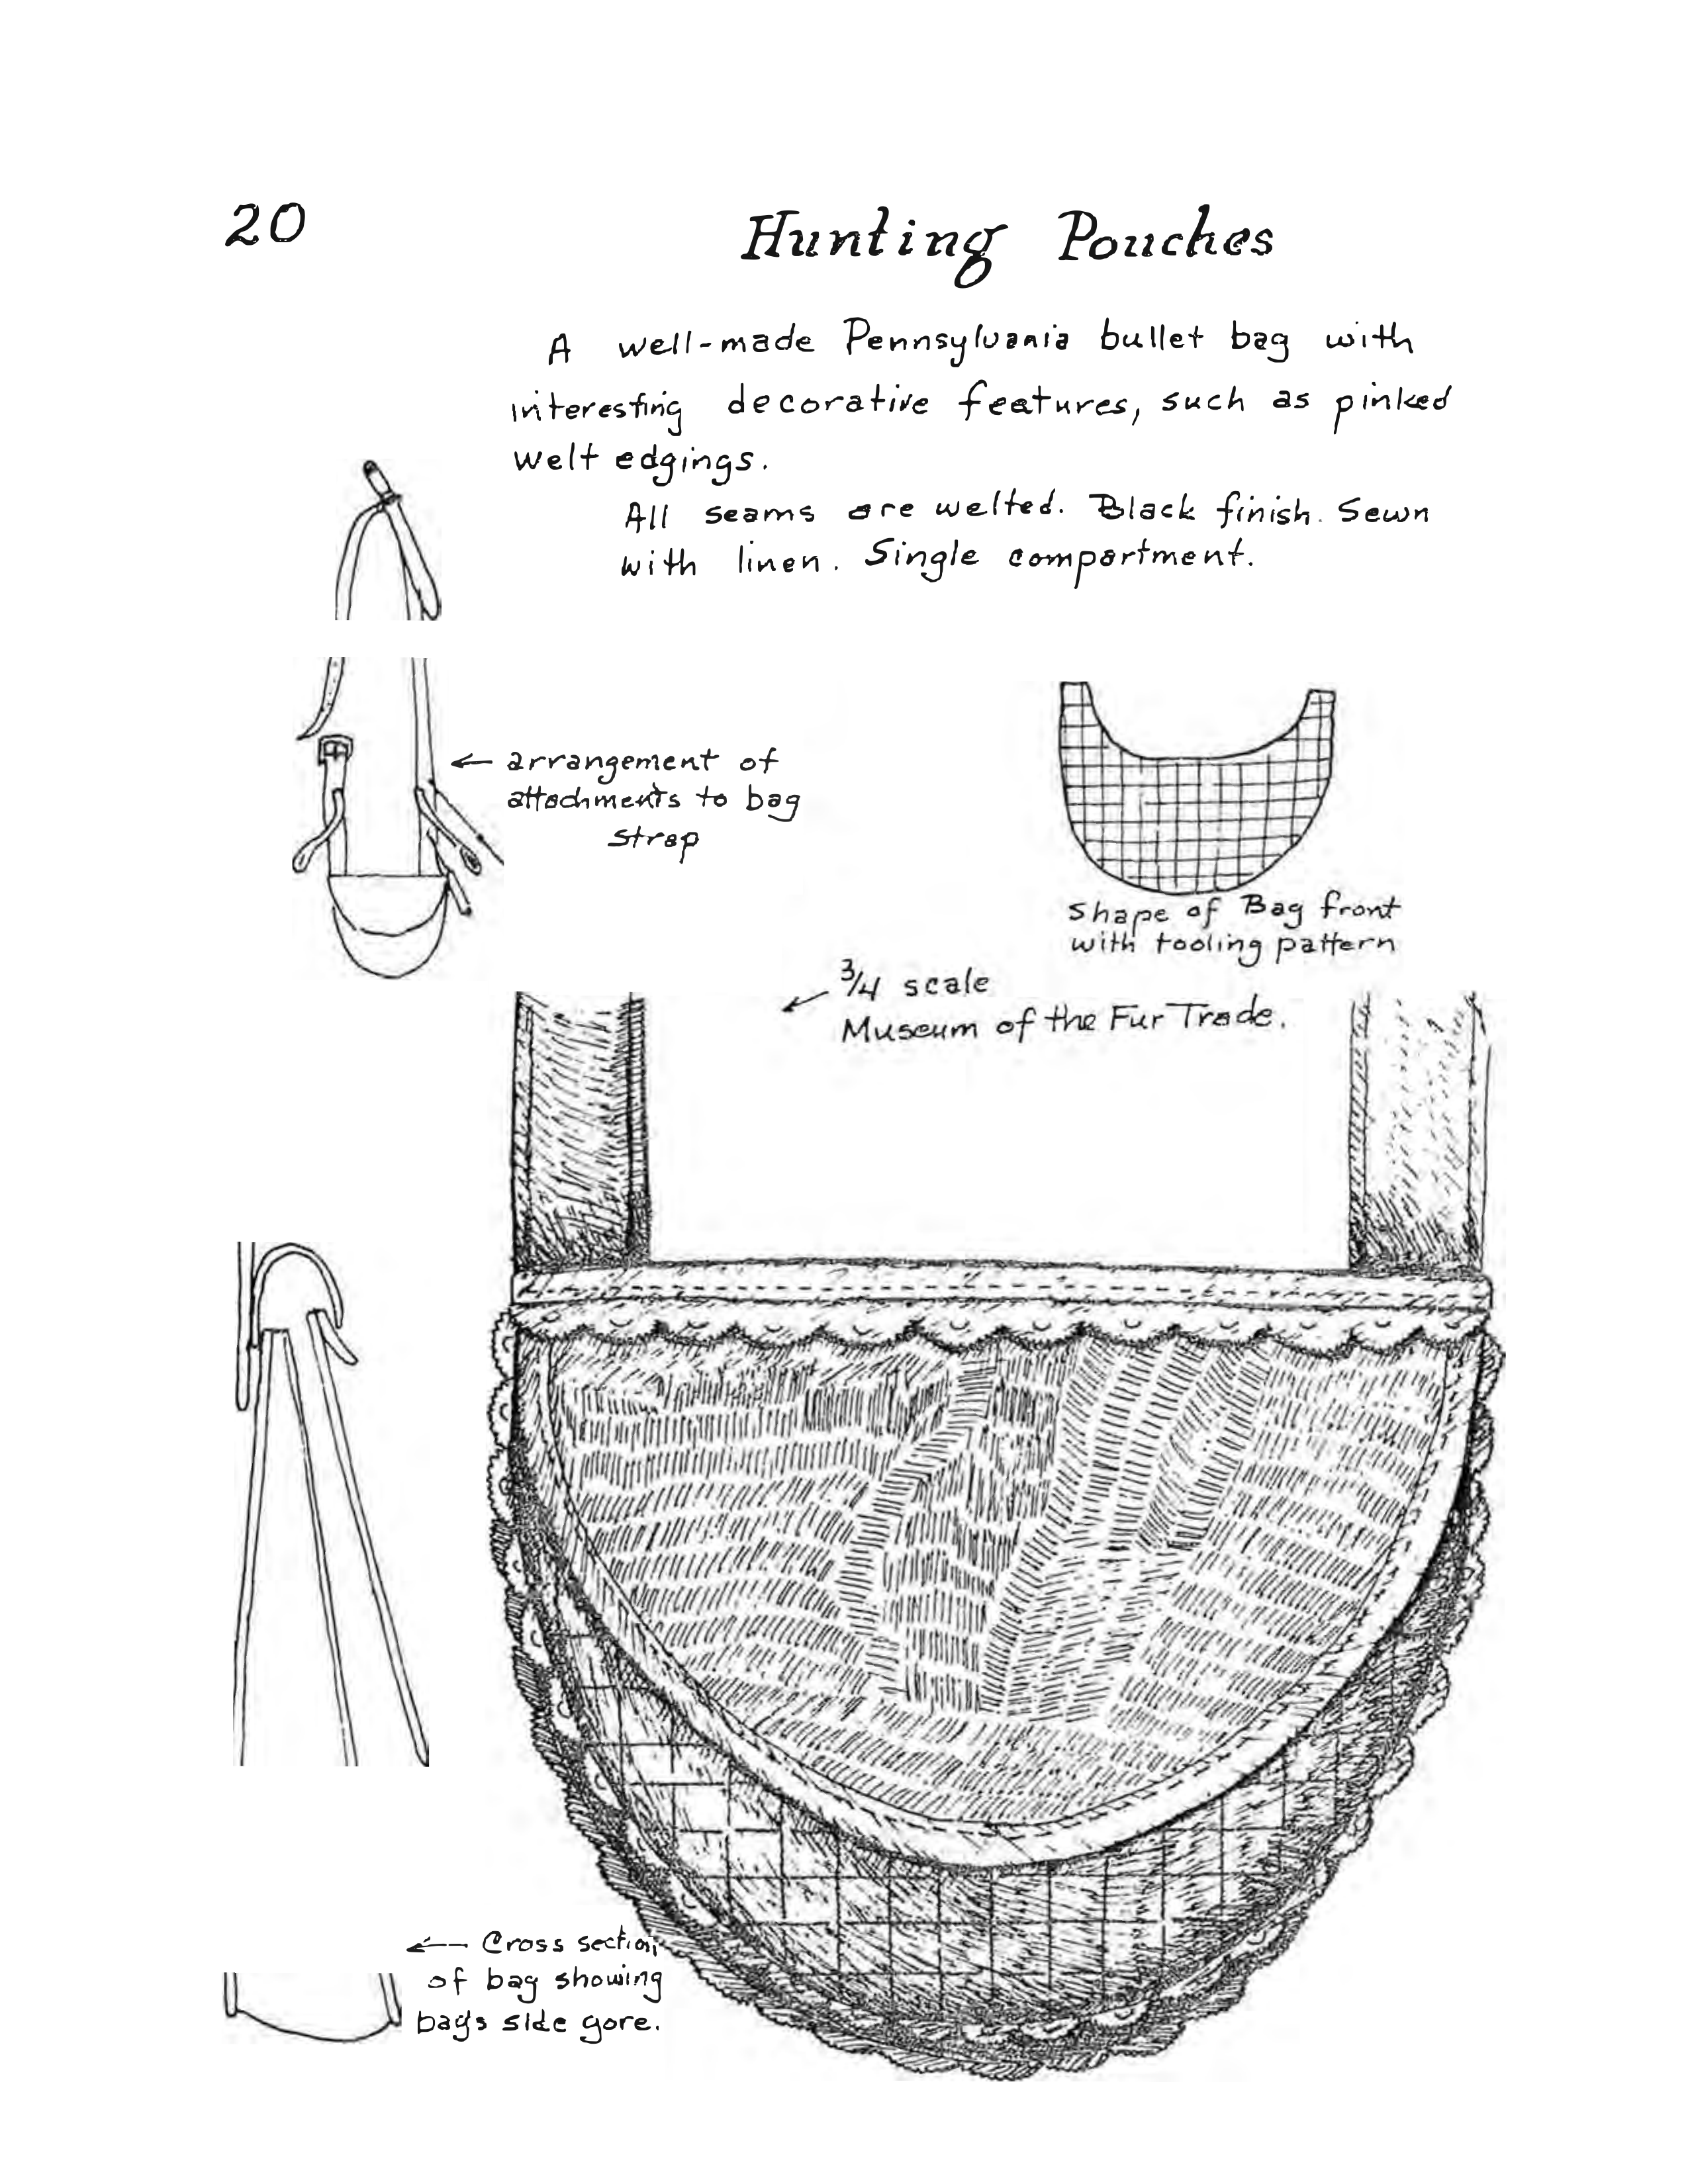 20
Hunting Pouches
A well-made Pennsylvania bullet bag with
interesting decorative features, such as pinked
welt edgings.
All seams are welted. Black finish. Sewn
with linen. Single compartment.
← arrangement of
attachments to bag
strap
Shape of Bag front
with tooling pattern
3/4 scale
Museum of the Fur Trade.
← Cross section
of bag showing
bag's side gore.